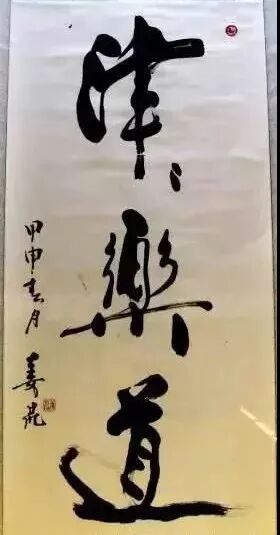 津〻樂道
甲申春月
姜昆